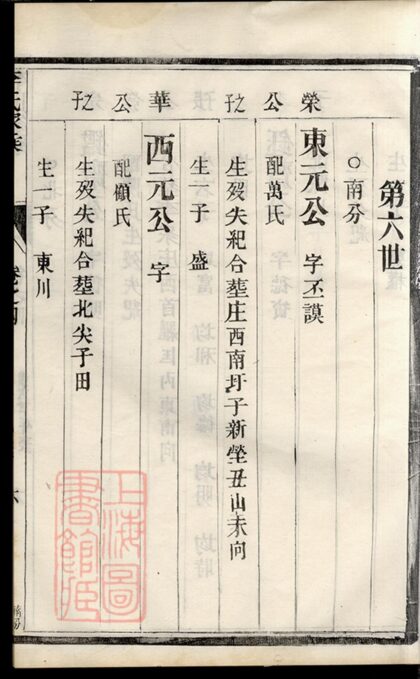 第六世
○南分
榮公子
東元公 字丕謨
配萬氏
生歿失紀合塟庄西南圩子新塋丑山未向
生一子 盛
華公子
西元公 字
配顧氏
生歿失紀合塟北尖子田
生一子 東川
上海圖書館藏